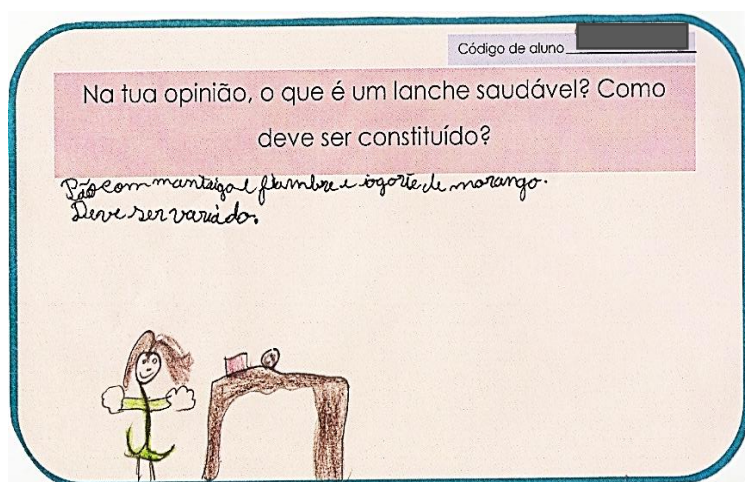 Código de aluno
Na tua opinião, o que é um lanche saudável? Como
deve ser constituído?
Pão com manteiga e fiambre e iogorte de morango.
Deve ser variádo.